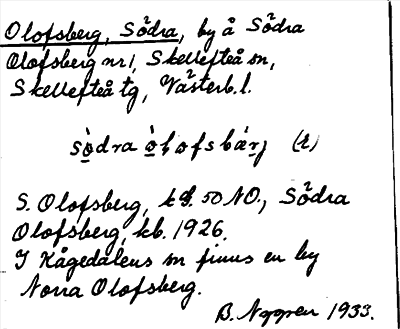 Olofsberg, Södra, by å Södra
Olofsberg nr 1, Skellefteå sn,
Skellefteå tg, Västerb. l.
södra òlofsbærj (ɛ)
S. Olofsberg, kbl. 50 NO., Södra
Olofsberg, kb. 1926.
I Kågedalens sn finns en by
Norra Olofsberg.
B. Nygren 1933.